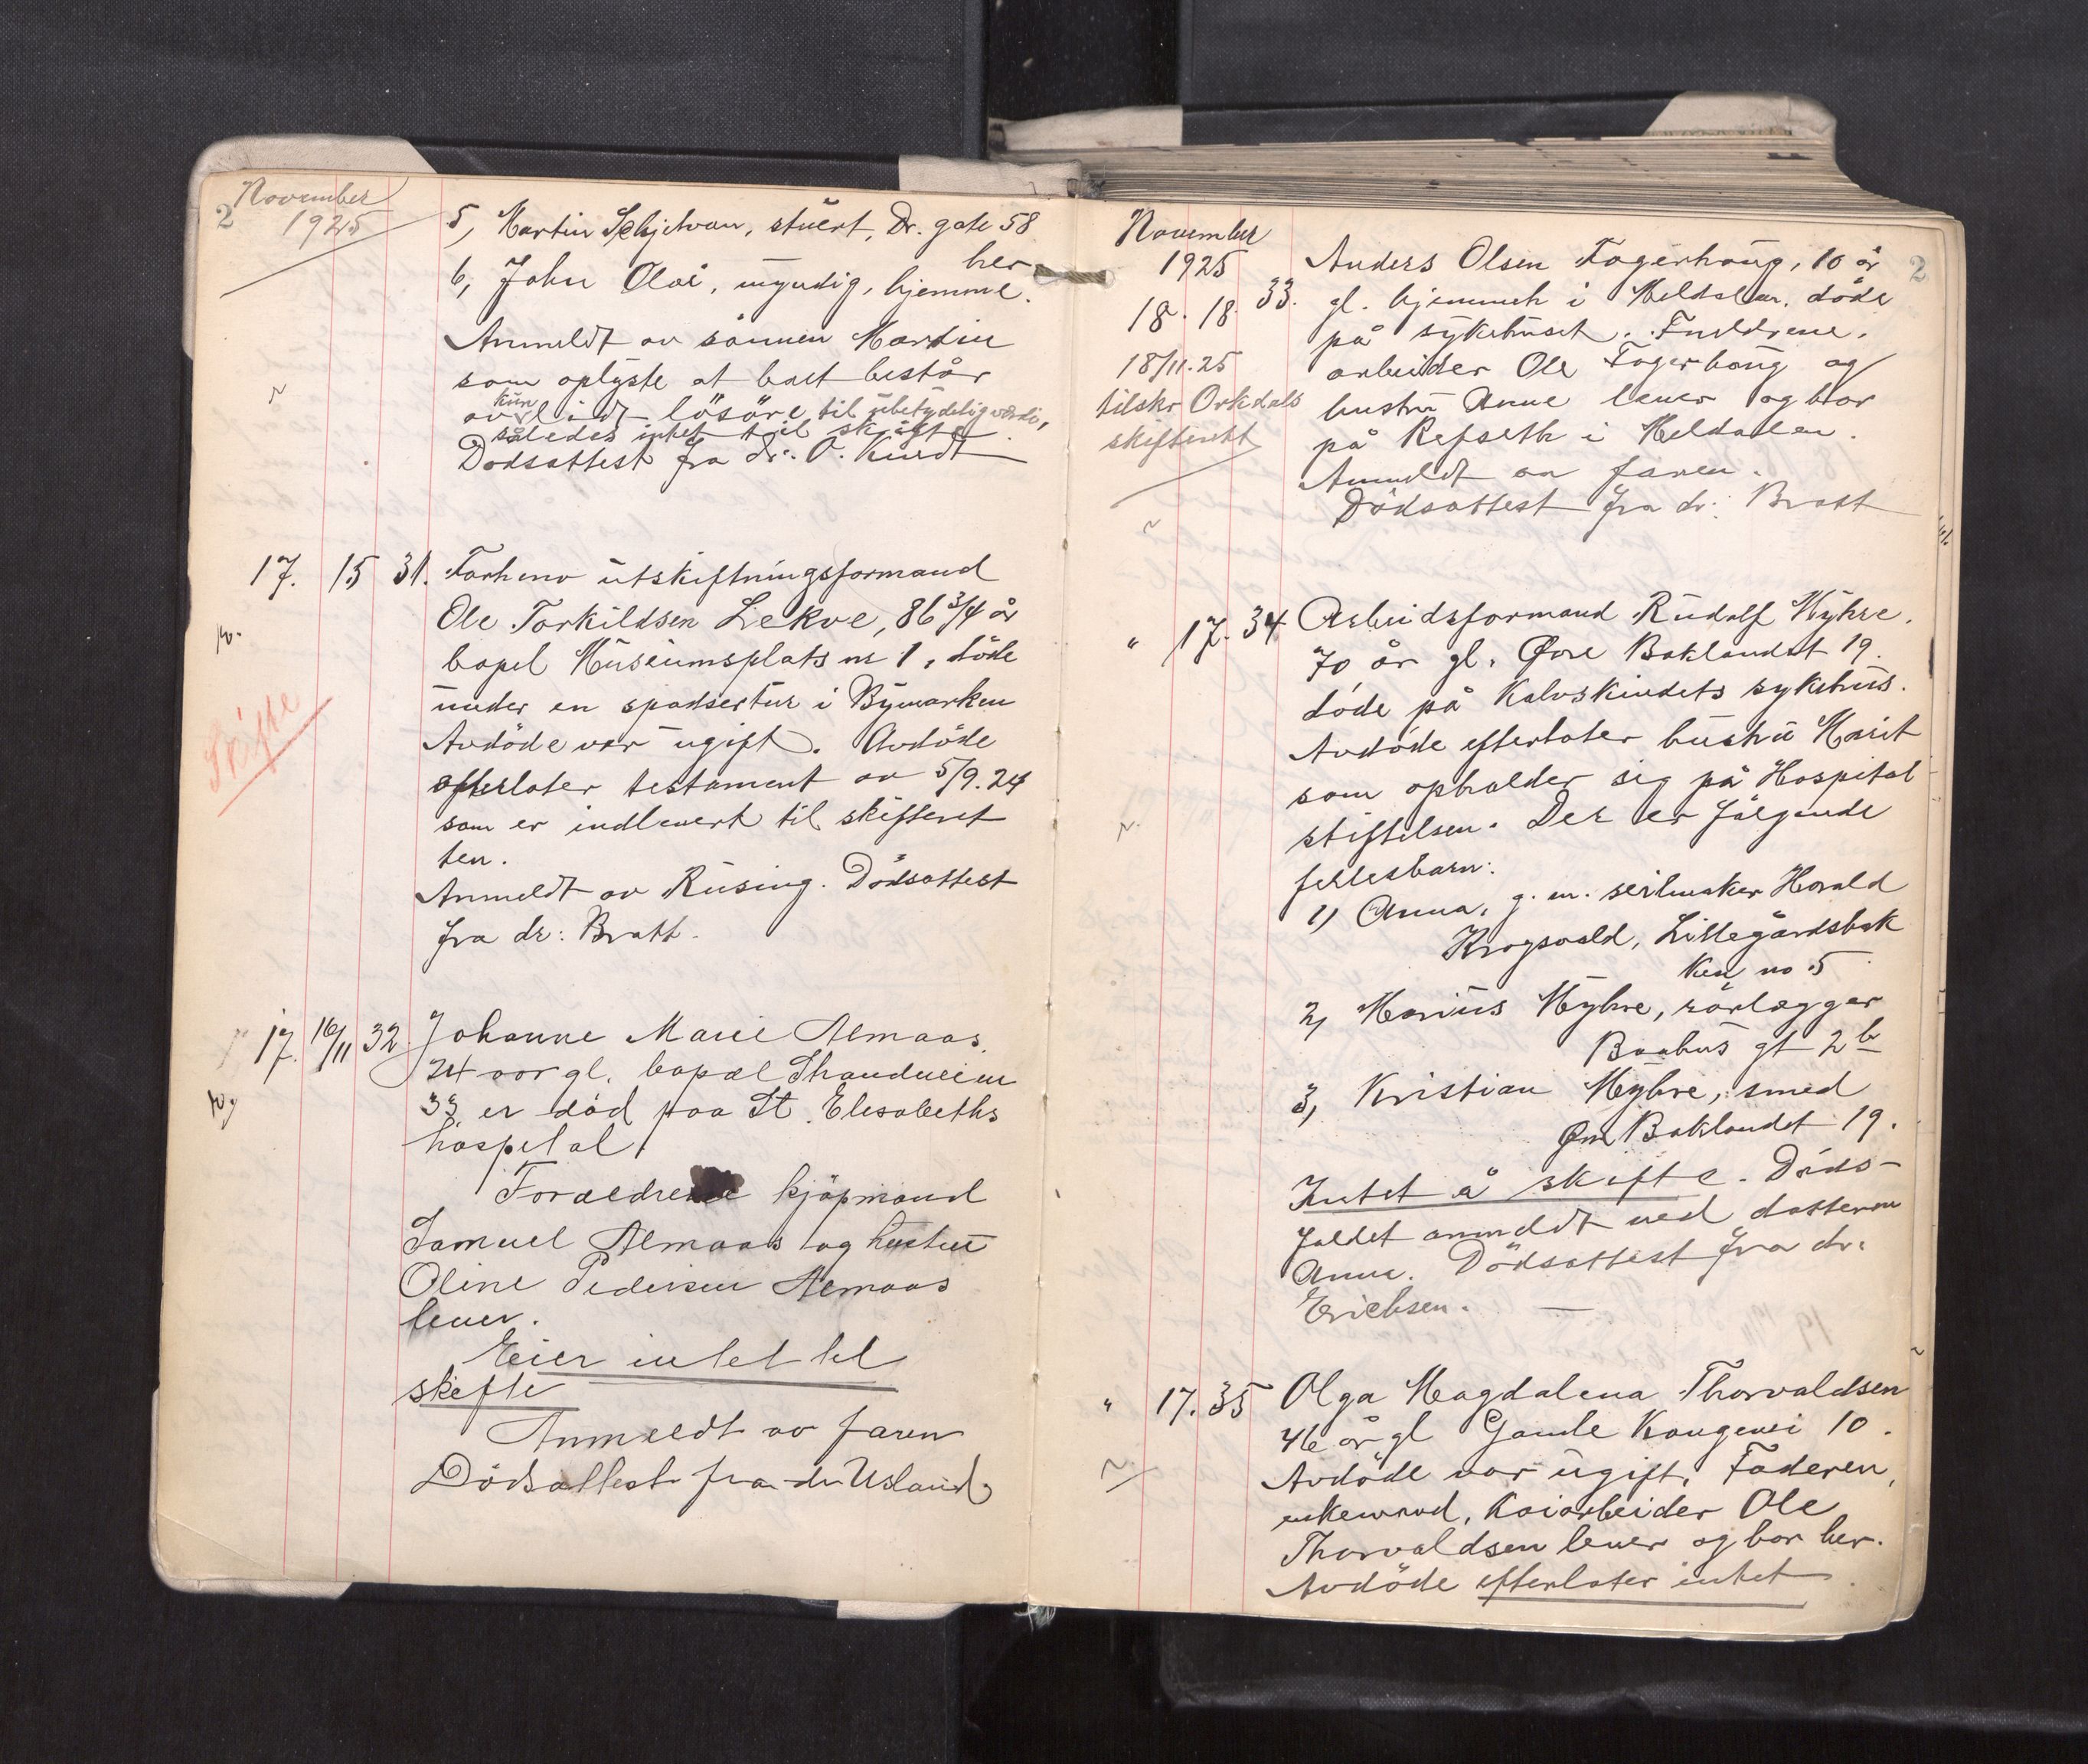 2
November
1925
5, Martin Schjelvan, stuert, Dr. gate 58
her
6, John Olai, myndig, hjemme.
Anmeldt av sönnen Martin
som oplyste at boet består
kun
av lidt lösöre til ubetydelig værdi,
således intet til skifte.
Dødsattest fra dr. O. Kindt
17. 15 31. Forhenv utskiftningsformand
Ole Torkildsen Lekve, 86 3/4 år
bopel Museumsplats nr 1, döde
under en spadsertur i Bymarken
Skifte
Avdöde var ugift. Avdöde
efterlater testament av 5/9.24
som er indlevert til skifteret
ten.
Anmeldt av Rusing. Dödsattest
fra dr: Bratt.
17. 16/11 32. Johanne Marie Almaas,
24 aar gl. bopæl Thrandheim
33 er död paa St. Elesabeths
hospital
Forældrene kjöpmand
Samuel Almaas og hustru
Oline Pedersen Almaas
lever.
Eier intet til
skefte
Anmeldt av faren
Dödsattest fra dr Usland
November
1925
2
18. 18. 33. Anders Olsen Fagerhaug, 10 år
gl. hjemmeh i Meldalen, döde
på sykehuset. Foreldrene,
18/11.25
tilskr Orkdals
skifterett
arbeider Ole Fagerhaug og
hustru Anne lever og bor
på Refseth i Meldalen.
Anmeldt av faren.
Dödsattest fra dr: Bratt
" 17. 34 Arbeidsformand Rudolf Myhre,
70 år gl. Øvre Baklandet 19.
döde på Kalvskindets sykehus.
Avdöde efterlater hustru Marit
som opholder sig på Hospital
stiftelsen. Der er fölgende
fellesbarn:
1) Anna, g. m. seilmaker Harald
Krogsvold, Lillegårdsbak
ken no 5
2, Marius Myhre, rörlægger
Baahus gt 2b
3, Kristian Myhre, smed
Øvre Baklandet 19.
Intet å skifte. Döds-
faldet anmeldt ved datteren
Anna. Dödsattest fra dr.
Erichsen.
" 17. 35 Olga Magdalena Thorvaldsen
46 år gl Gamle Kongevei 10.
Avdöde var ugift. Faderen,
enkemand, havarbeider Ole
Thorvaldsen lever og bor her.
Avdöde efterlater intet